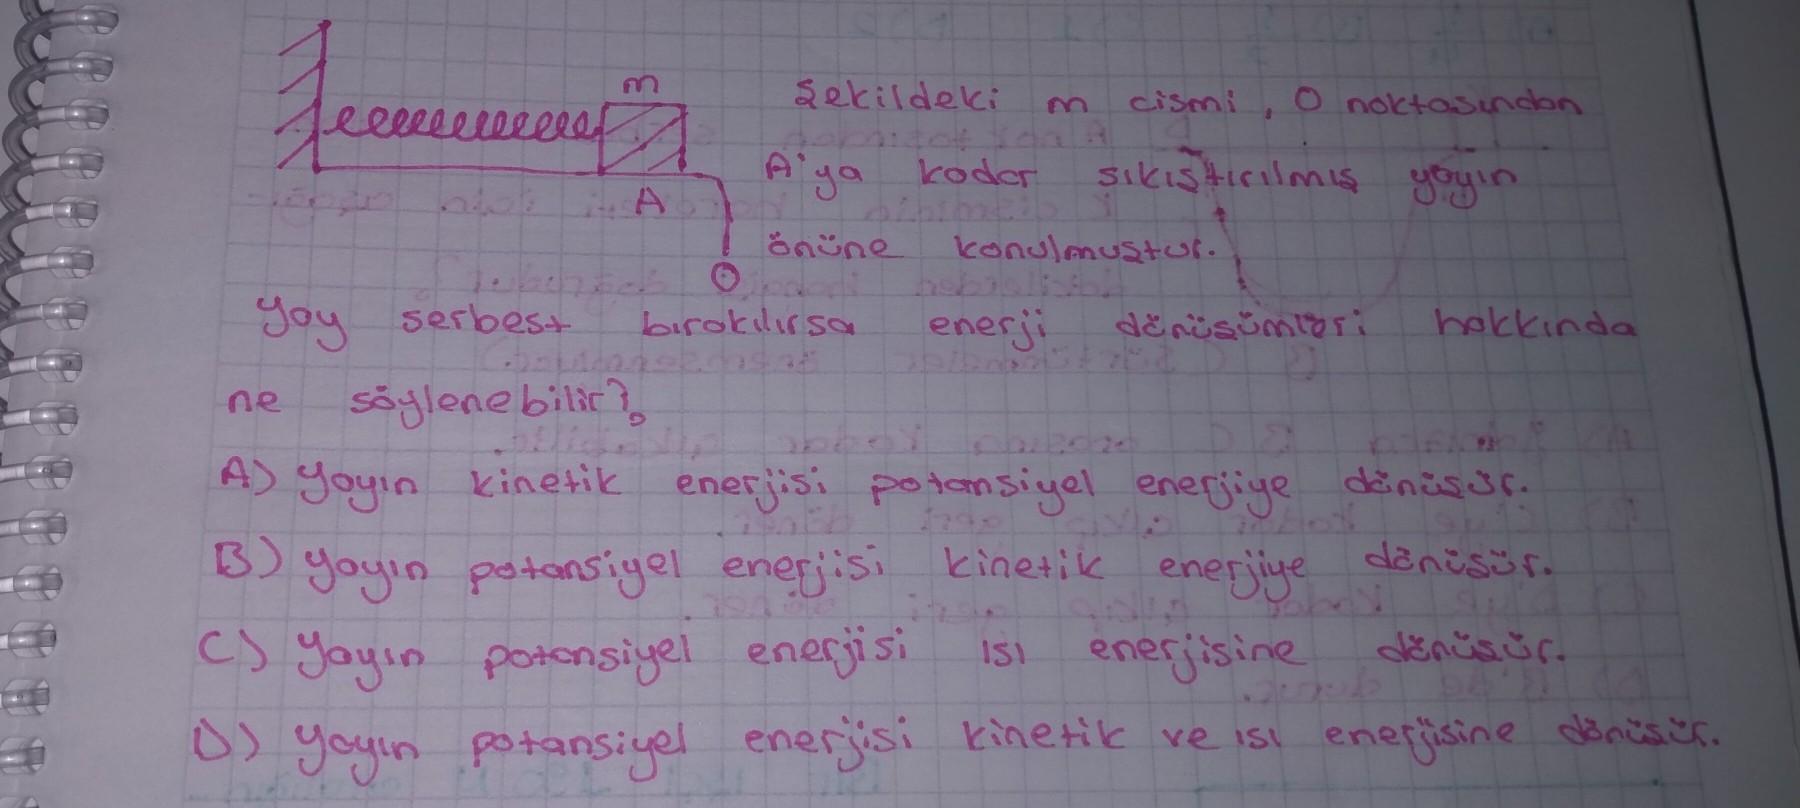 m
Şekildeki m cismi, O noktasından
A'ya kadar sıkıştırılmış yayın
A
önüne konulmuştur.
O
Yay serbest bırakılırsa enerji dönüşümleri hakkında
ne söylenebilir?
A) Yayın kinetik enerjisi potansiyel enerjiye dönüşür.
B) Yayın potansiyel enerjisi kinetik enerjiye dönüşür.
C) Yayın potansiyel enerjisi ısı enerjisine dönüşür.
D) Yayın potansiyel enerjisi kinetik ve ısı enerjisine dönüşür.